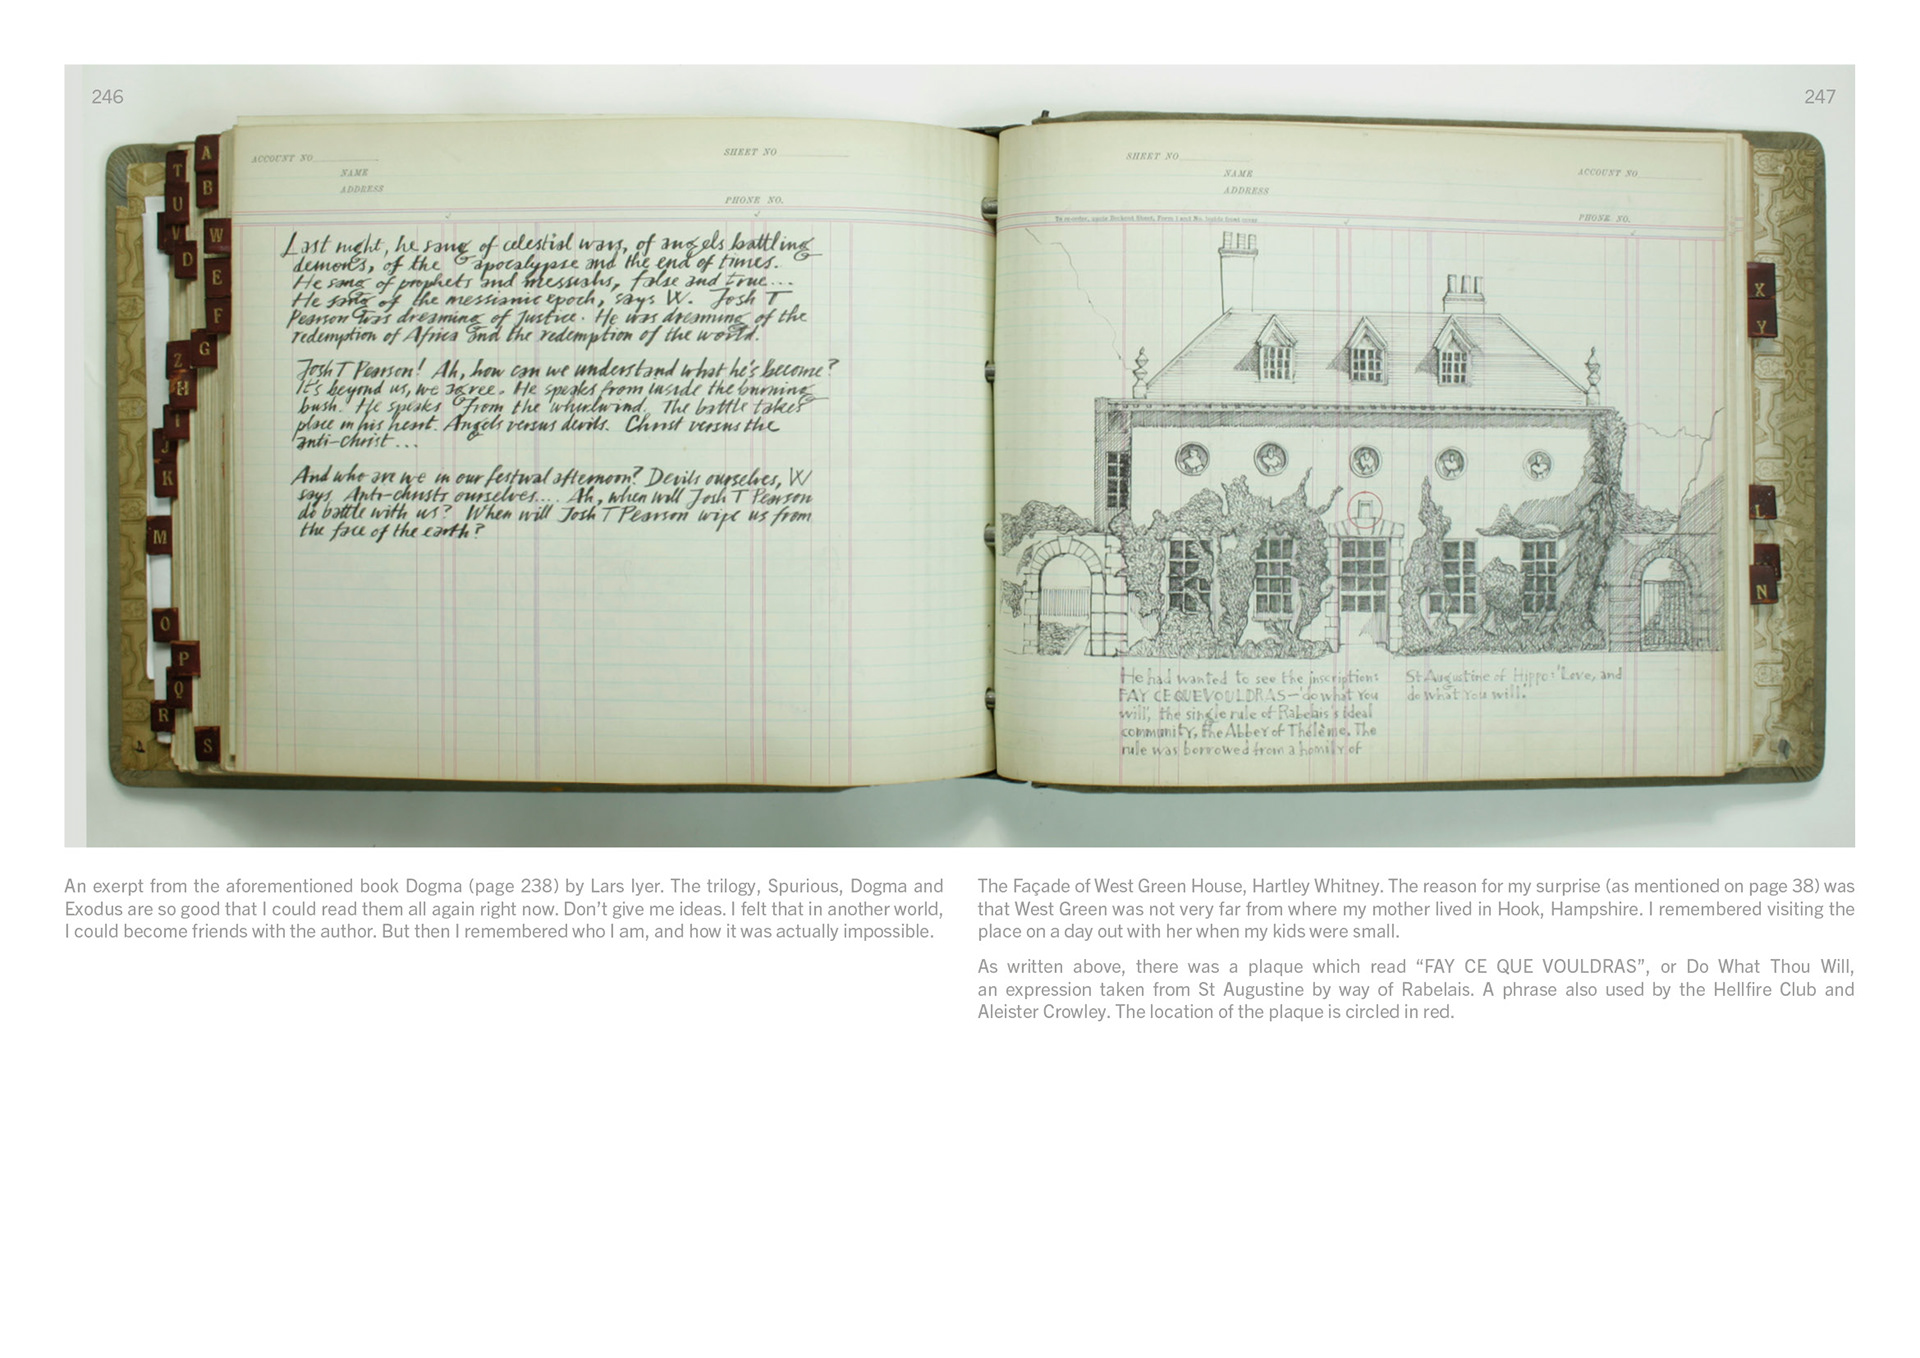 246
247
A
T
B
U
V
W
D
E
F
G
Z
H
I
J
K
M
O
P
Q
R
S
ACCOUNT NO
SHEET NO
NAME
ADDRESS
PHONE NO.
Last night, he sang of celestial wars, of angels battling
demons, of the apocalypse and the end of times.
He sang of prophets and messiahs, false and true...
He sang of the messianic epoch, says W. Josh T
Pearson was dreaming of justice. He was dreaming of the
redemption of Africa and the redemption of the world.
Josh T Pearson! Ah, how can we understand what he's become?
It's beyond us, we agree. He speaks from inside the burning
bush. He speaks from the whirlwind. The battle takes
place in his heart. Angels versus devils. Christ versus the
anti-christ...
And who are we in our festival afternoon? Devils ourselves, W
says. Anti-christs ourselves.... Ah, when will Josh T Pearson
do battle with us? When will Josh T Pearson wipe us from
the face of the earth?
SHEET NO
ACCOUNT NO
NAME
ADDRESS
PHONE NO.
He had wanted to see the inscription:
FAY CE QUE VOULDRAS – 'do what you
will', the single rule of Rabelais's ideal
community, the Abbey of Thélème. The
rule was borrowed from a homily of
St Augustine of Hippo: 'Love, and
do what you will.'
X
Y
L
N
An exerpt from the aforementioned book Dogma (page 238) by Lars Iyer. The trilogy, Spurious, Dogma and
Exodus are so good that I could read them all again right now. Don't give me ideas. I felt that in another world,
I could become friends with the author. But then I remembered who I am, and how it was actually impossible.
The Façade of West Green House, Hartley Whitney. The reason for my surprise (as mentioned on page 38) was
that West Green was not very far from where my mother lived in Hook, Hampshire. I remembered visiting the
place on a day out with her when my kids were small.
As written above, there was a plaque which read “FAY CE QUE VOULDRAS”, or Do What Thou Will,
an expression taken from St Augustine by way of Rabelais. A phrase also used by the Hellfire Club and
Aleister Crowley. The location of the plaque is circled in red.